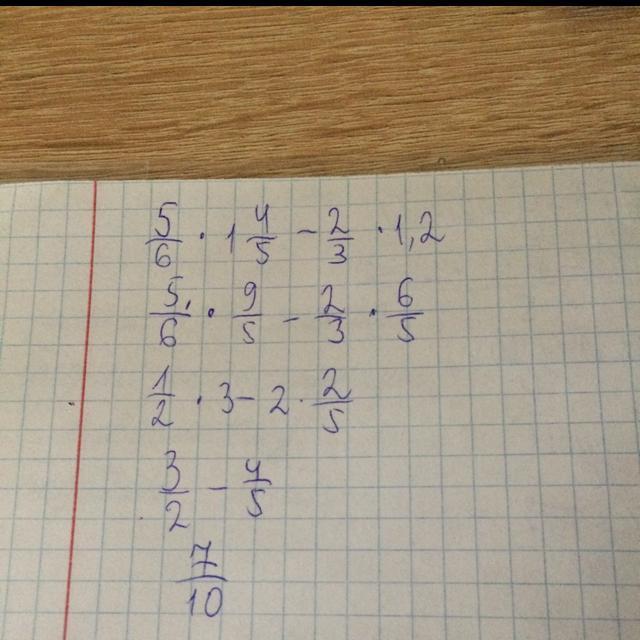 5/6 · 1 4/5 - 2/3 · 1,2
5/6 · 9/5 - 2/3 · 6/5
1/2 · 3 - 2 · 2/5
3/2 - 4/5
7/10